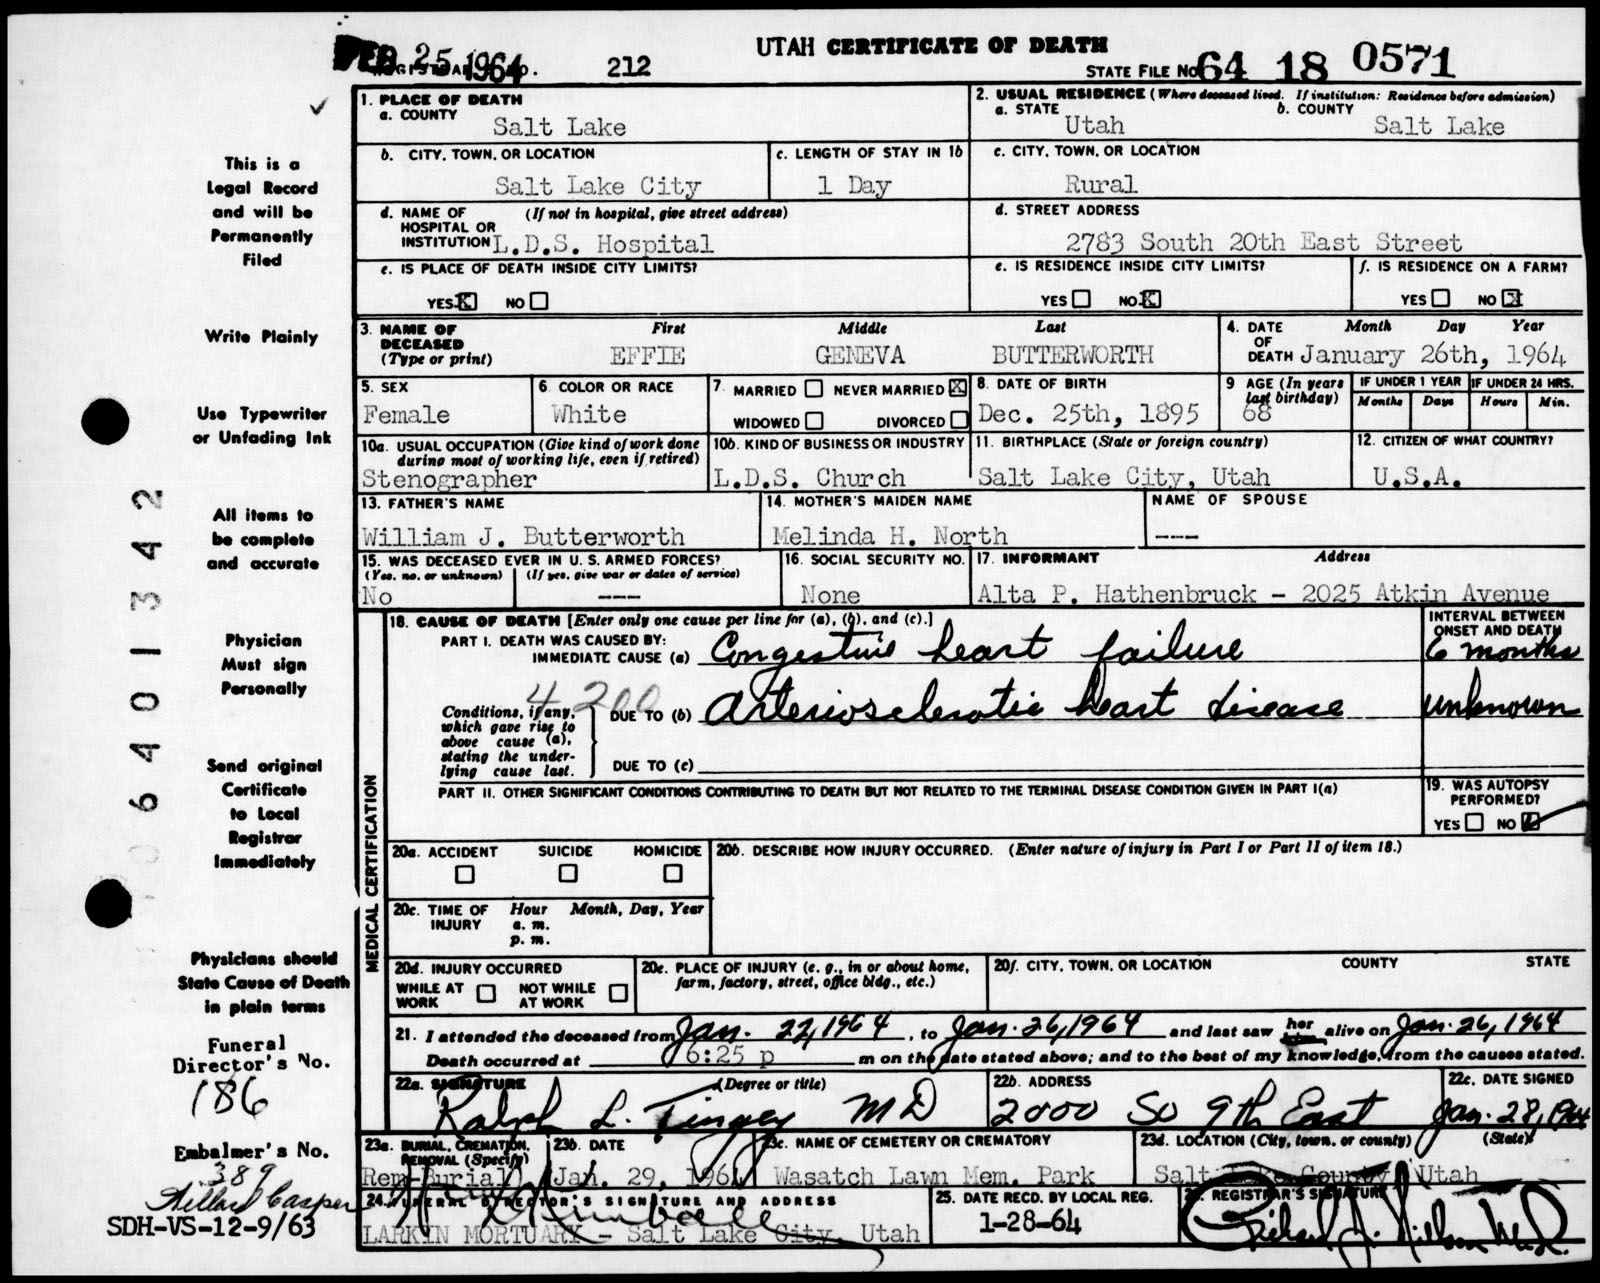 FEB 25 1964
UTAH CERTIFICATE OF DEATH
212
STATE FILE NO. 64 18 0571
This is a
Legal Record
and will be
Permanently
Filed
Write Plainly
Use Typewriter
or Unfading Ink
All items to
be complete
and accurate
Physician
Must sign
Personally
Send original
Certificate
to Local
Registrar
Immediately
Physicians should
State Cause of Death
in plain terms
Funeral
Director's No.
186
Embalmer's No.
389
SDH-VS-12-9/63
6401342
1. PLACE OF DEATH
a. COUNTY
Salt Lake
2. USUAL RESIDENCE (Where deceased lived. If institution: Residence before admission)
a. STATE
Utah
b. COUNTY
Salt Lake
b. CITY, TOWN, OR LOCATION
Salt Lake City
c. LENGTH OF STAY IN 1b
1 Day
c. CITY, TOWN, OR LOCATION
Rural
d. NAME OF HOSPITAL OR INSTITUTION (If not in hospital, give street address)
L.D.S. Hospital
d. STREET ADDRESS
2783 South 20th East Street
e. IS PLACE OF DEATH INSIDE CITY LIMITS?
YES X NO
e. IS RESIDENCE INSIDE CITY LIMITS?
YES NO X
f. IS RESIDENCE ON A FARM?
YES NO X
3. NAME OF DECEASED (Type or print)
First Middle Last
EFFIE GENEVA BUTTERWORTH
4. DATE OF DEATH
Month Day Year
January 26th, 1964
5. SEX
Female
6. COLOR OR RACE
White
7. MARRIED NEVER MARRIED X
WIDOWED DIVORCED
8. DATE OF BIRTH
Dec. 25th, 1895
9 AGE (In years last birthday)
68
IF UNDER 1 YEAR
Months Days
IF UNDER 24 HRS.
Hours Min.
10a. USUAL OCCUPATION (Give kind of work done during most of working life, even if retired)
Stenographer
10b. KIND OF BUSINESS OR INDUSTRY
L.D.S. Church
11. BIRTHPLACE (State or foreign country)
Salt Lake City, Utah
12. CITIZEN OF WHAT COUNTRY?
U.S.A.
13. FATHER'S NAME
William J. Butterworth
14. MOTHER'S MAIDEN NAME
Melinda H. North
NAME OF SPOUSE
---
15. WAS DECEASED EVER IN U. S. ARMED FORCES?
(Yes, no, or unknown) (If yes, give war or dates of service)
No ---
16. SOCIAL SECURITY NO.
None
17. INFORMANT Address
Alta P. Hathenbruck - 2025 Atkin Avenue
MEDICAL CERTIFICATION
18. CAUSE OF DEATH [Enter only one cause per line for (a), (b), and (c).]
PART I. DEATH WAS CAUSED BY:
IMMEDIATE CAUSE (a) Congestive heart failure
INTERVAL BETWEEN ONSET AND DEATH
6 months
4200
Conditions, if any, which gave rise to above cause (a), stating the underlying cause last.
DUE TO (b) Arteriosclerotic heart disease
unknown
DUE TO (c)
PART II. OTHER SIGNIFICANT CONDITIONS CONTRIBUTING TO DEATH BUT NOT RELATED TO THE TERMINAL DISEASE CONDITION GIVEN IN PART I(a)
19. WAS AUTOPSY PERFORMED?
YES NO
20a. ACCIDENT SUICIDE HOMICIDE
20b. DESCRIBE HOW INJURY OCCURRED. (Enter nature of injury in Part I or Part II of item 18.)
20c. TIME OF INJURY Hour Month, Day, Year
a. m.
p. m.
20d. INJURY OCCURRED
WHILE AT WORK NOT WHILE AT WORK
20e. PLACE OF INJURY (e. g., in or about home, farm, factory, street, office bldg., etc.)
20f. CITY, TOWN, OR LOCATION COUNTY STATE
21. I attended the deceased from Jan. 22, 1964, to Jan. 26, 1964 and last saw her alive on Jan. 26, 1964
Death occurred at 6:25 p m on the date stated above; and to the best of my knowledge, from the causes stated.
22a. SIGNATURE (Degree or title)
Ralph L. Tingey MD
22b. ADDRESS
2000 So 9th East
22c. DATE SIGNED
Jan. 28, 1964
23a. BURIAL, CREMATION, REMOVAL (Specify)
Rem-Burial
23b. DATE
Jan. 29, 1964
23c. NAME OF CEMETERY OR CREMATORY
Wasatch Lawn Mem. Park
23d. LOCATION (City, town, or county) (State)
Salt Lake County, Utah
24. FUNERAL DIRECTOR'S SIGNATURE AND ADDRESS
LARKIN MORTUARY - Salt Lake City, Utah
25. DATE RECD. BY LOCAL REG.
1-28-64
REGISTRAR'S SIGNATURE